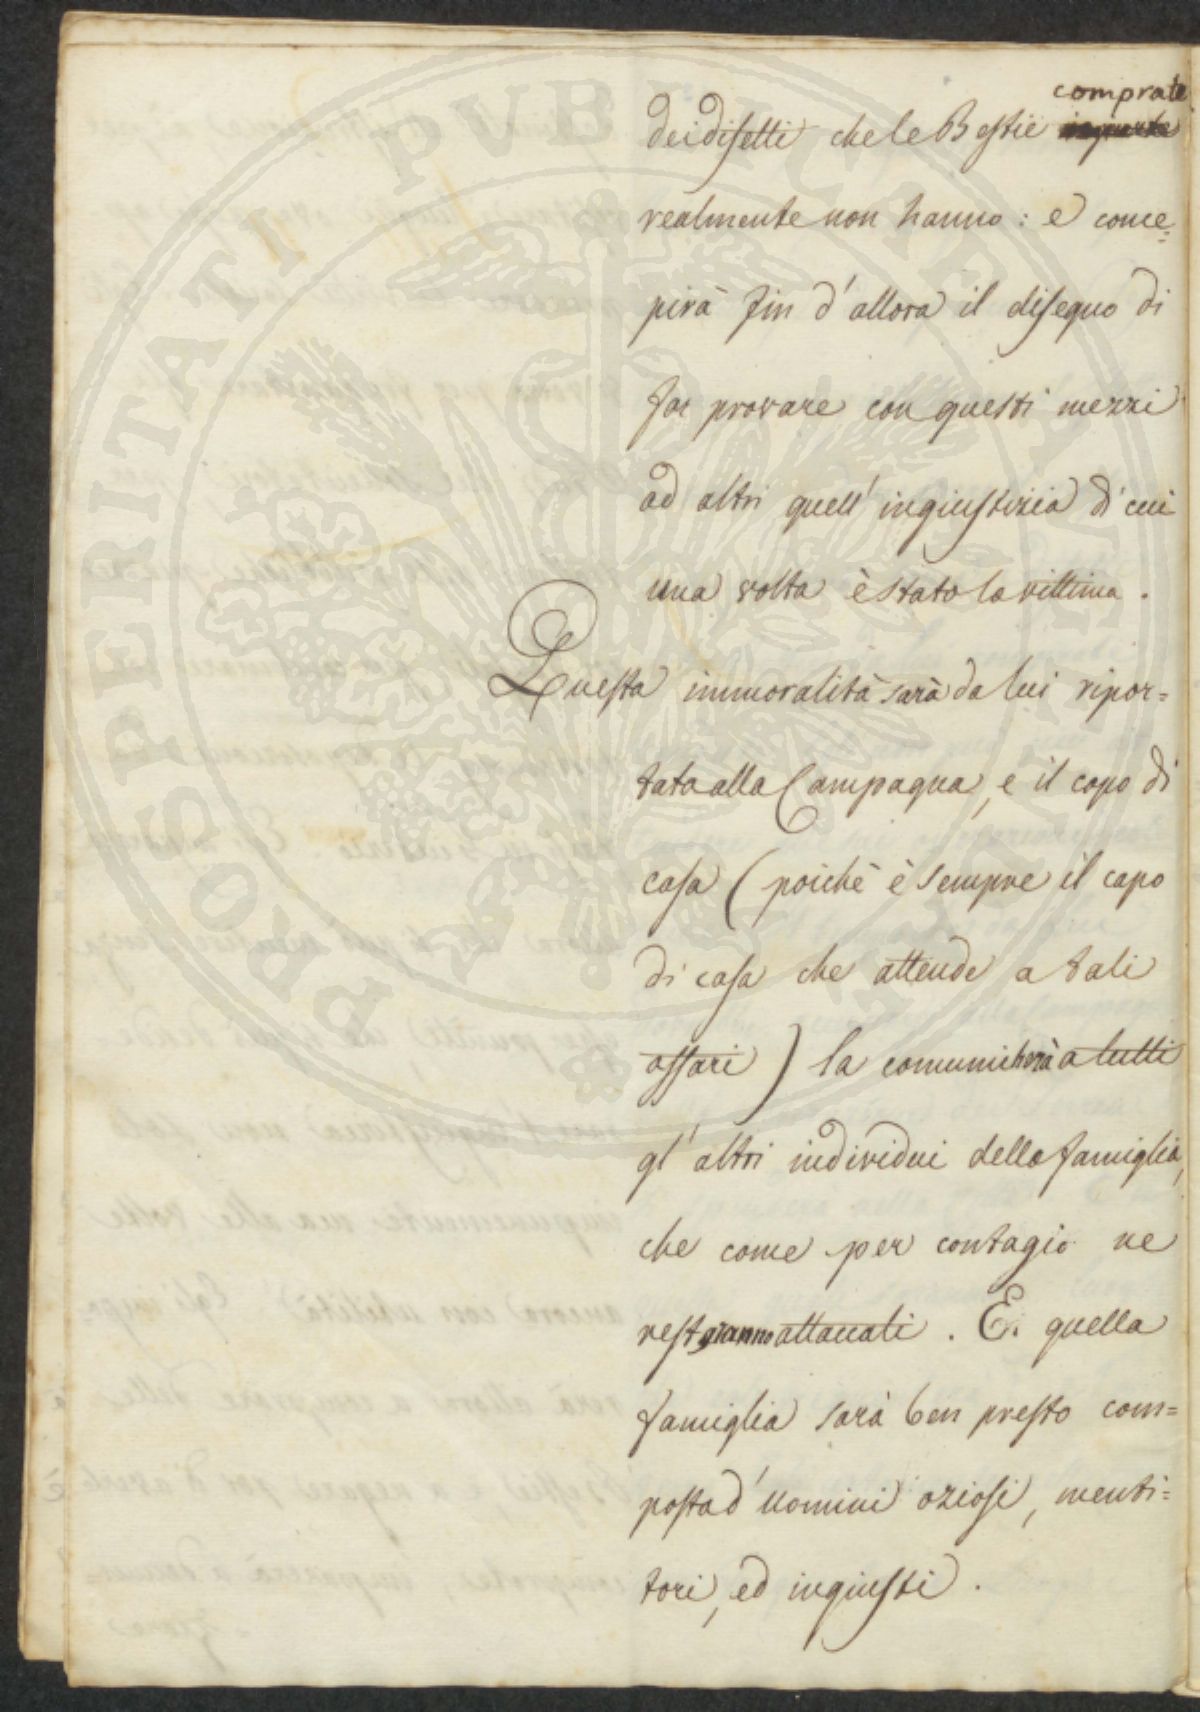 comprate
dei difetti che le Bestie
realmente non hanno: e conce=
pirà fin d'allora il disegno di
far provare con questi mezzi
ad altri quell'ingiustizia di cui
una volta è stato la vittima.
Questa immoralità sarà da lui ripor=
tata alla Campagna, e il capo di
casa (poichè è sempre il capo
di casa che attende a tali
affari) la comunicherà a tutti
gl'altri individui della famiglia,
che come per contagio ne
resteranno attaccati. E quella
famiglia sarà ben presto com=
posta d'uomini oziosi, menti=
tori, ed ingiusti.
PROSPERITATI PVBLICAE